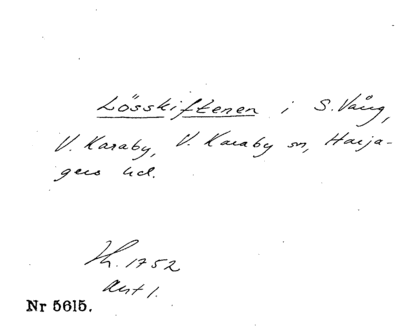 Lösskiftenen i S. Vång,
V. Karaby, V. Karaby sn, Harja-
gers hd.
Lh. 1752
Akt 1.
Nr 5615.